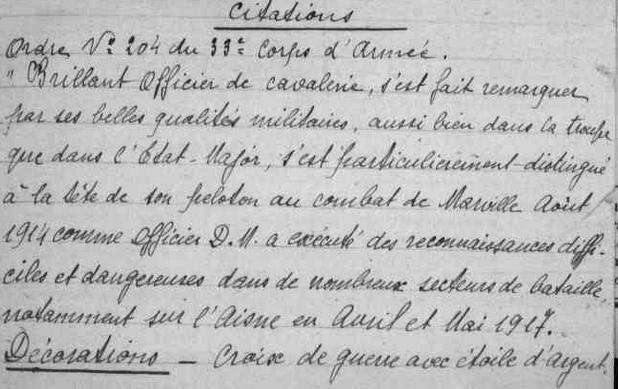 Citations
Ordre N° 204 du 33e Corps d'Armée.
"Brillant Officier de cavalerie, s'est fait remarquer
par ses belles qualités militaires, aussi bien dans la troupe
que dans l'Etat-Major, s'est particulièrement distingué
à la tête de son peloton au combat de Marville Août
1914 comme Officier D.M. a exécuté des reconnaissances diffi-
ciles et dangereuses dans de nombreux secteurs de bataille,
notamment sur l'Aisne en Avril et Mai 1917.
Décorations – Croix de guerre avec étoile d'Argent.